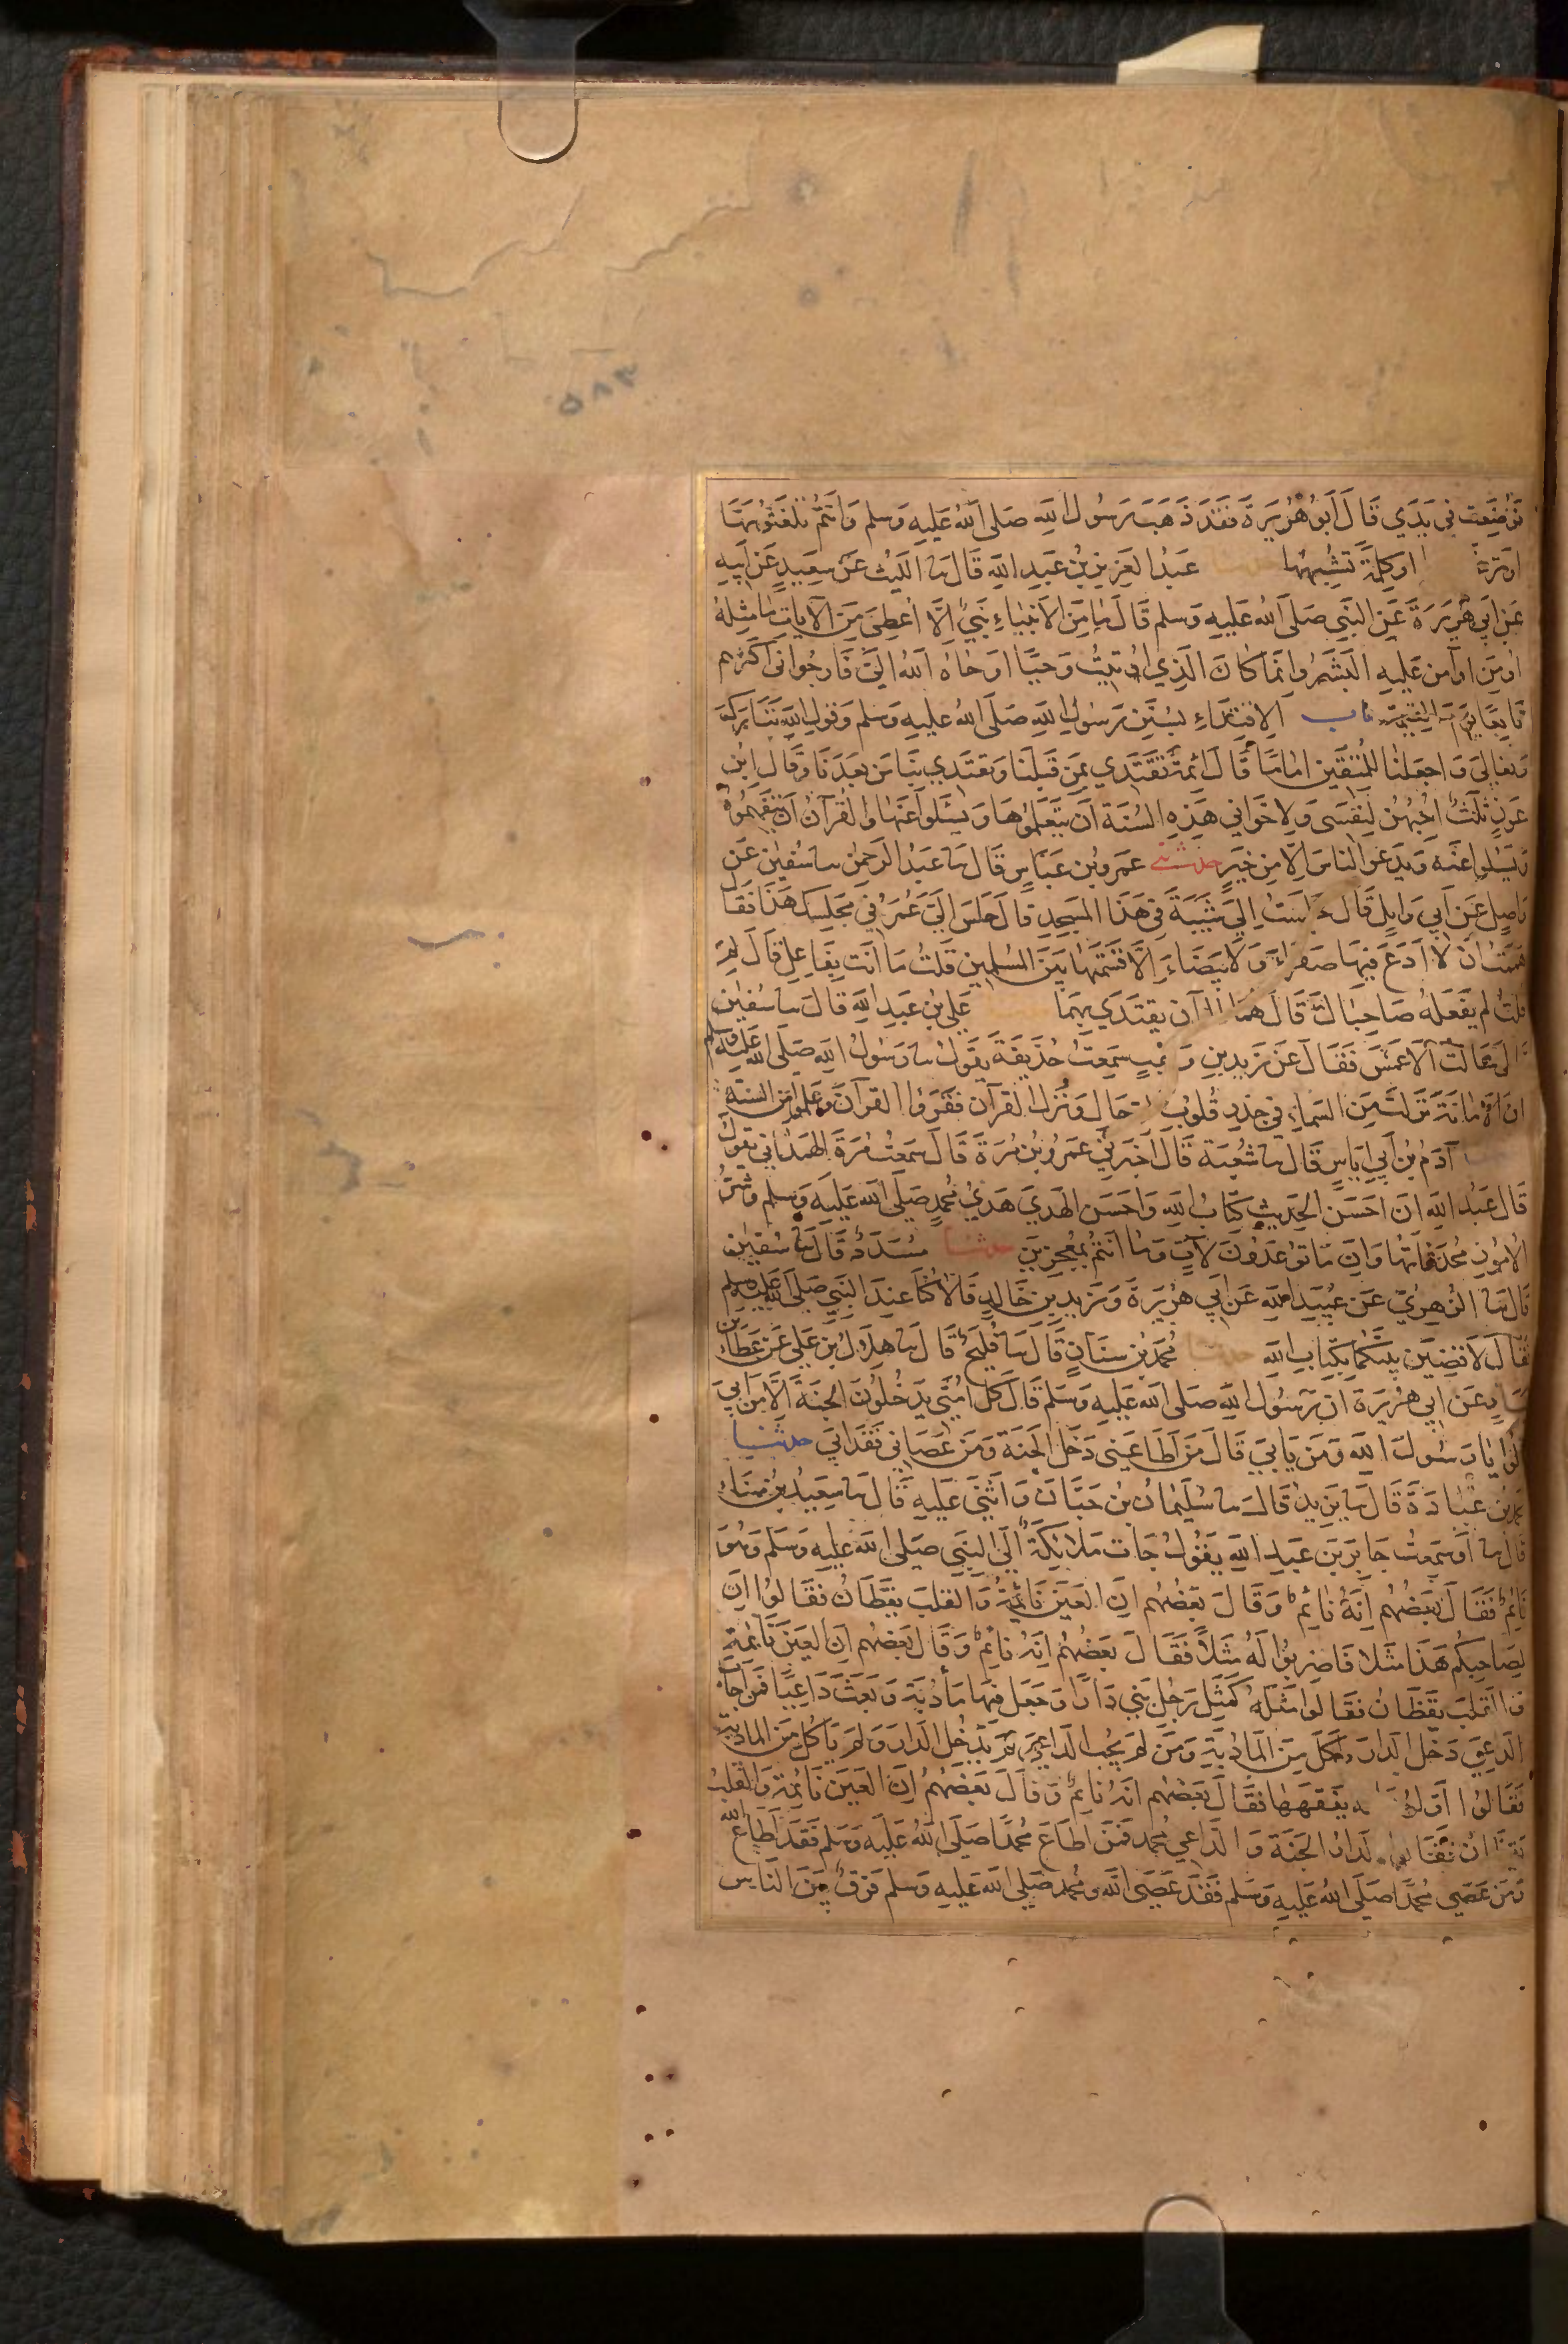 ٥٨٣
فوضعت في يدي قال ابو هريرة فقد ذهب رسول الله صلى الله عليه وسلم وانتم تلغثونها
او كلمة تشبهها عبد العزيز بن عبد الله قال ثنا الليث عن سعيد عن ابيه
عن ابي هريرة عن النبي صلى الله عليه وسلم قال ما من الانبياء نبي الا اعطي من الايات ما مثله
اومن او آمن عليه البشر وانما كان الذي اوتيت وحيا اوحاه الله الي فارجوا اني اكثرهم
تابعا يوم القيمة باب الاقتداء بسنن رسول الله صلى الله عليه وسلم وقول الله تبارك
وتعالى واجعلنا للمتقين اماما قال ائمة نقتدي بمن قبلنا ويقتدي بنا من بعدنا وقال ابن
عون ثلث احبهن لنفسي ولاخواني هذه السنة ان يتعلموها ويسئلوا عنها والقرآن ان يتفهموه
ويسئلوا عنه ويدعوا الناس الا من خير حدثني عمرو بن عباس قال ثنا عبد الرحمن ثنا سفين عن
واصل عن ابي وايل قال جلست الي شيبة في هذا المسجد قال جلس الي عمر في مجلسك هذا فقال
هممت ان لا ادع فيها صفراء ولا بيضاء الا قسمتها بين المسلمين قلت ما انت بفاعل قال لم
قلت لم يفعله صاحباك قال هما يقتدي بهما علي بن عبد الله قال ثنا سفين
قال سالت الاعمش فقال عن زيد بن وهب سمعت حذيفة يقول ثنا رسول الله صلى الله عليه وسلم
ان الامانة نزلت من السماء في جذر قلوب الرجال ونزل القرآن فقرؤا القرآن وعلموا من السنة
آدم بن ابي اياس قال ثنا شعبة قال اخبرني عمرو بن مرة قال سمعت مرة الهمداني يقول
قال عبد الله ان احسن الحديث كتاب الله واحسن الهدي هدي محمد صلى الله عليه وسلم وشر
الامور محدثاتها وان ما توعدون لآت وما انتم بمعجزين حدثنا مسدد قال ثنا سفين
قال ثنا الزهري عن عبيد الله عن ابي هريرة وزيد بن خالد قالا كنا عند النبي صلى الله عليه وسلم
فقال لاقضين بينكما بكتاب الله حدثنا محمد بن سنان قال ثنا فليح قال ثنا هلال بن علي عن عطاء بن
يسار عن ابي هريرة ان رسول الله صلى الله عليه وسلم قال كل امتي يدخلون الجنة الا من ابى
قالوا يا رسول الله ومن يابى قال من اطاعني دخل الجنة ومن عصاني فقد ابى حدثنا
محمد بن عبادة قال ثنا يزيد قال ثنا سليمان بن حيان واثنى عليه قال ثنا سعيد بن ميناء
قال ثنا او سمعت جابر بن عبد الله يقول جات ملائكة الى النبي صلى الله عليه وسلم وهو
نائم فقال بعضهم انه نائم وقال بعضهم ان العين نائمة والقلب يقظان فقالوا ان
لصاحبكم هذا مثلا فاضربوا له مثلا فقال بعضهم انه نائم وقال بعضهم ان العين نائمة
والقلب يقظان فقالوا مثله كمثل رجل بنى دارا وجعل فيها مأدبة وبعث داعيا فمن اجاب
الداعي دخل الدار واكل من المأدبة ومن لم يجب الداعي لم يدخل الدار ولم ياكل من المادبة
فقالوا اولوها له يفقهها فقال بعضهم انه نائم وقال بعضهم ان العين نائمة والقلب
يقظان فقالوا الدار الجنة والداعي محمد فمن اطاع محمدا صلى الله عليه وسلم فقد اطاع الله
ومن عصى محمدا صلى الله عليه وسلم فقد عصى الله ومحمد صلى الله عليه وسلم فرق بين الناس